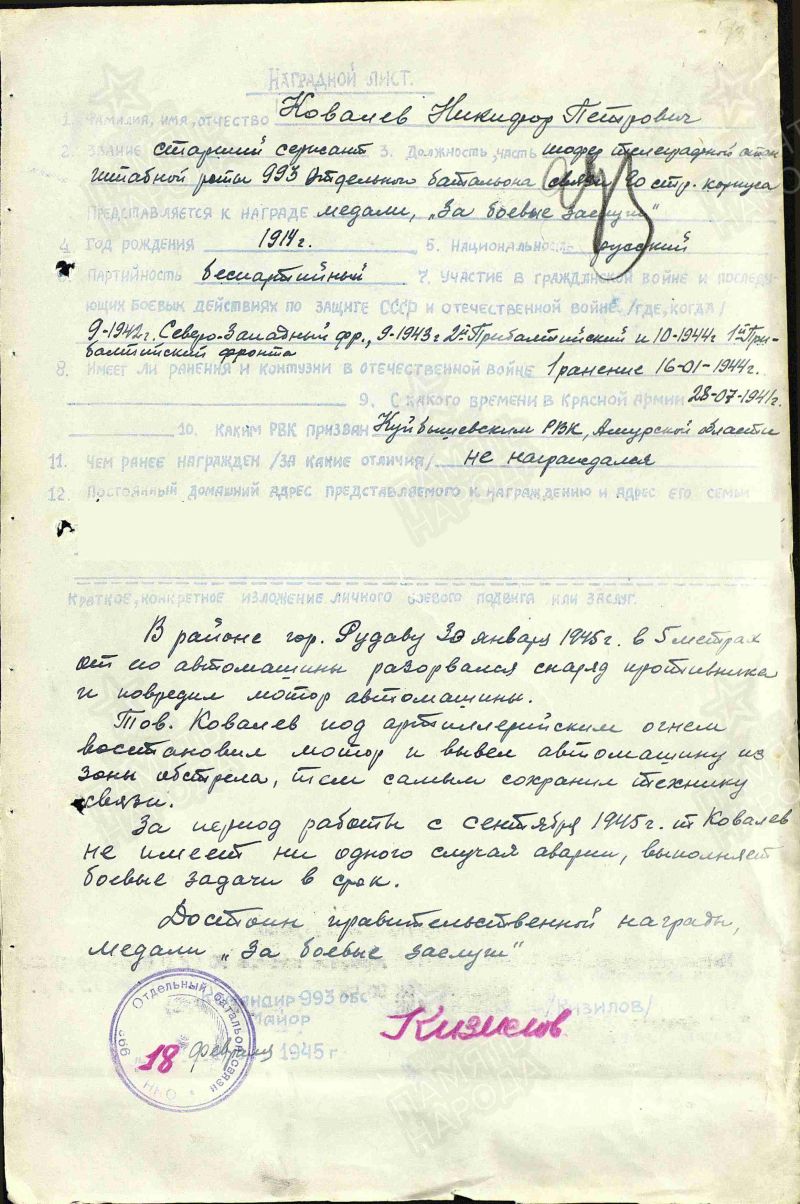 НАГРАДНОЙ ЛИСТ.
1. ФАМИЛИЯ, ИМЯ, ОТЧЕСТВО Ковалев Никифор Петрович
2. ЗВАНИЕ старший сержант 3. ДОЛЖНОСТЬ, ЧАСТЬ шофер телеграфной
штабной роты 993 отдельного батальона связи 90 стр. корпуса
ПРЕДСТАВЛЯЕТСЯ К НАГРАДЕ медали, "За боевые заслуги"
4. ГОД РОЖДЕНИЯ 1914 г. 5. НАЦИОНАЛЬНОСТЬ русский
6. ПАРТИЙНОСТЬ беспартийный 7. УЧАСТИЕ В ГРАЖДАНСКОЙ ВОЙНЕ И ПОСЛЕДУ-
ЮЩИХ БОЕВЫХ ДЕЙСТВИЯХ ПО ЗАЩИТЕ СССР И ОТЕЧЕСТВЕННОЙ ВОЙНЕ /ГДЕ, КОГДА/
9-1942г. Северо-Западный фр., 9-1943г 2й Прибалтийский и 10-1944г 1й При-
балтийский фронта
8. ИМЕЕТ ЛИ РАНЕНИЯ И КОНТУЗИИ В ОТЕЧЕСТВЕННОЙ ВОЙНЕ 1 ранение 16-01-1944г.
9. С КАКОГО ВРЕМЕНИ В КРАСНОЙ АРМИИ 28-07-1941г.
10. КАКИМ РВК ПРИЗВАН Куйбышевским РВК, Амурской области
11. ЧЕМ РАНЕЕ НАГРАЖДЕН /ЗА КАКИЕ ОТЛИЧИЯ/ не награждался
12. ПОСТОЯННЫЙ ДОМАШНИЙ АДРЕС ПРЕДСТАВЛЯЕМОГО К НАГРАЖДЕНИЮ И АДРЕС ЕГО СЕМЬИ
КРАТКОЕ, КОНКРЕТНОЕ ИЗЛОЖЕНИЕ ЛИЧНОГО БОЕВОГО ПОДВИГА ИЛИ ЗАСЛУГ.
В районе гор. Рудаву 30 января 1945г. в 5 метрах
от его автомашины разорвался снаряд противника
и повредил мотор автомашины.
Тов. Ковалев под артиллерийским огнем
восстановил мотор и вывел автомашину из
зоны обстрела, тем самым сохранил технику
связи.
За период работы с сентября 1945г. т. Ковалев
не имеет ни одного случая аварии, выполняет
боевые задачи в срок.
Достоин правительственной награды,
медали "За боевые заслуги"
КОМАНДИР 993 ОБС
МАЙОР
Кизилов /КИЗИЛОВ/
18 февраля 1945 г
993 Отдельный батальон связи
ПАМЯТЬ НАРОДА